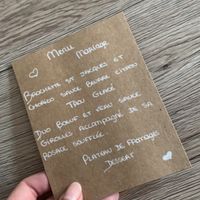 Menu Mariage
Brochette St Jacques et
chorizo sauce beurre citron
Trou Glacé
Duo Boeuf et veau sauce
Girolles accompagné de sa
rosace soufflée
Plateau de fromages
Dessert